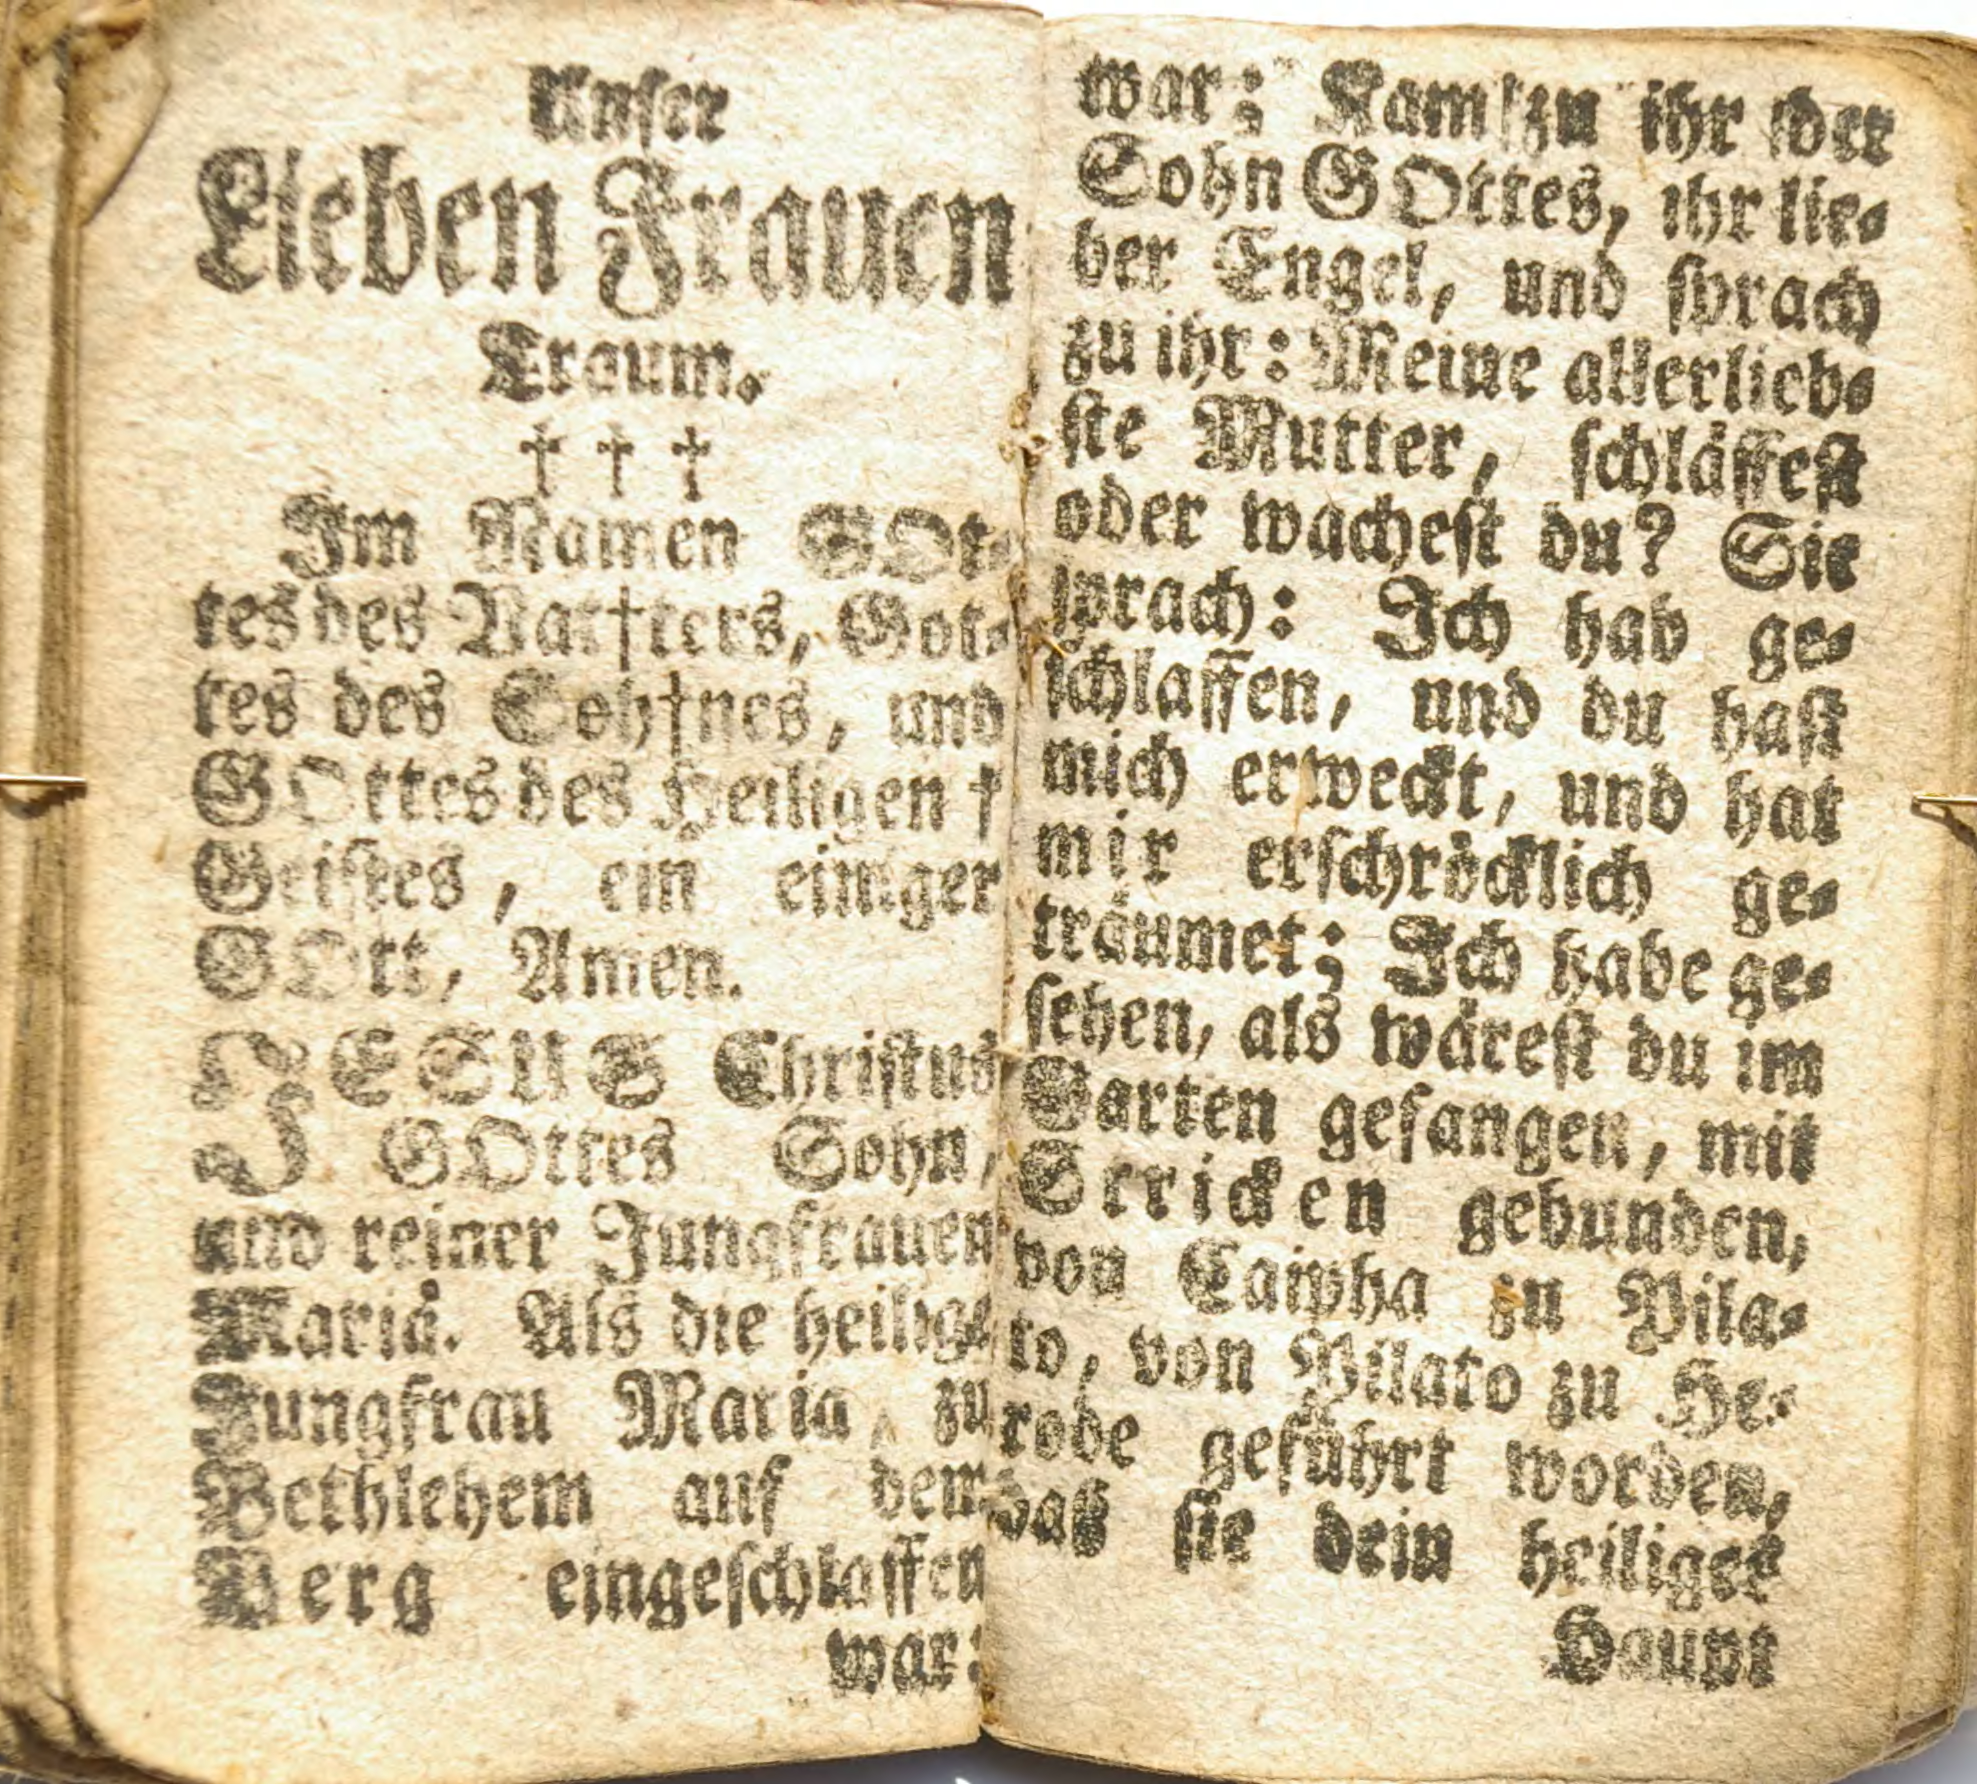 Unser
Lieben Frauen
Traum.
† † †
Im Namen GOt-
tes des Vat†ters, Got-
tes des Soh†nes, und
GOttes des Heiligen †
Geistes, ein einiger
GOtt, Amen.
JESUS Christus
GOttes Sohn,
und reiner Jungfrauen
Mariä. Als die heilige
Jungfrau Maria, zu
Bethlehem auf dem
Berg eingeschlaffen
war:
war; Kam zu ihr der
Sohn GOttes, ihr lie-
ber Engel, und sprach
zu ihr: Meine allerlieb-
ste Mutter, schläffest
oder wachest du? Sie
sprach: Ich hab ge-
schlaffen, und du hast
mich erweckt, und hat
mir erschröcklich ge-
träumet; Ich habe ge-
sehen, als wärest du im
Garten gefangen, mit
Stricken gebunden,
von Caipha zu Pila-
to, von Pilato zu He-
rode geführt worden,
daß sie dein heiliges
Haupt